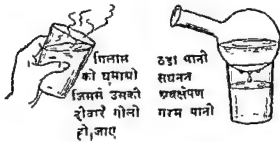 गिलास
को घुमाओ
जिससे उसकी
दीवारें गीली
हो जाए
ठंडा पानी
संघनन
अवक्षेपण
गरम पानी